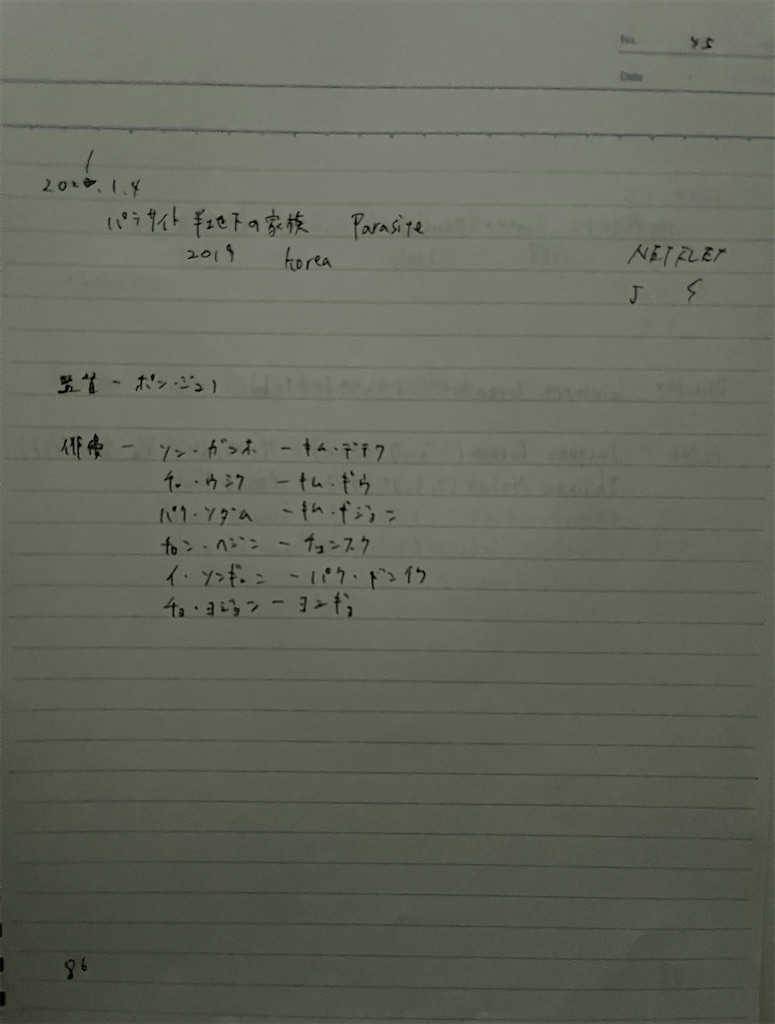 No. 45
Date
2021.1.4
パラサイト 半地下の家族 Parasite
2019 Korea NETFLEX
J S
監督 - ポン・ジュノ
俳優 - ソン・ガンホ - キム・ギテク
チェ・ウシク - キム・ギウ
パク・ソダム - キム・ギジョン
チャン・ヘジン - チュンスク
イ・ソンギュン - パク・ドンイク
チョ・ヨジョン - ヨンギョ
86